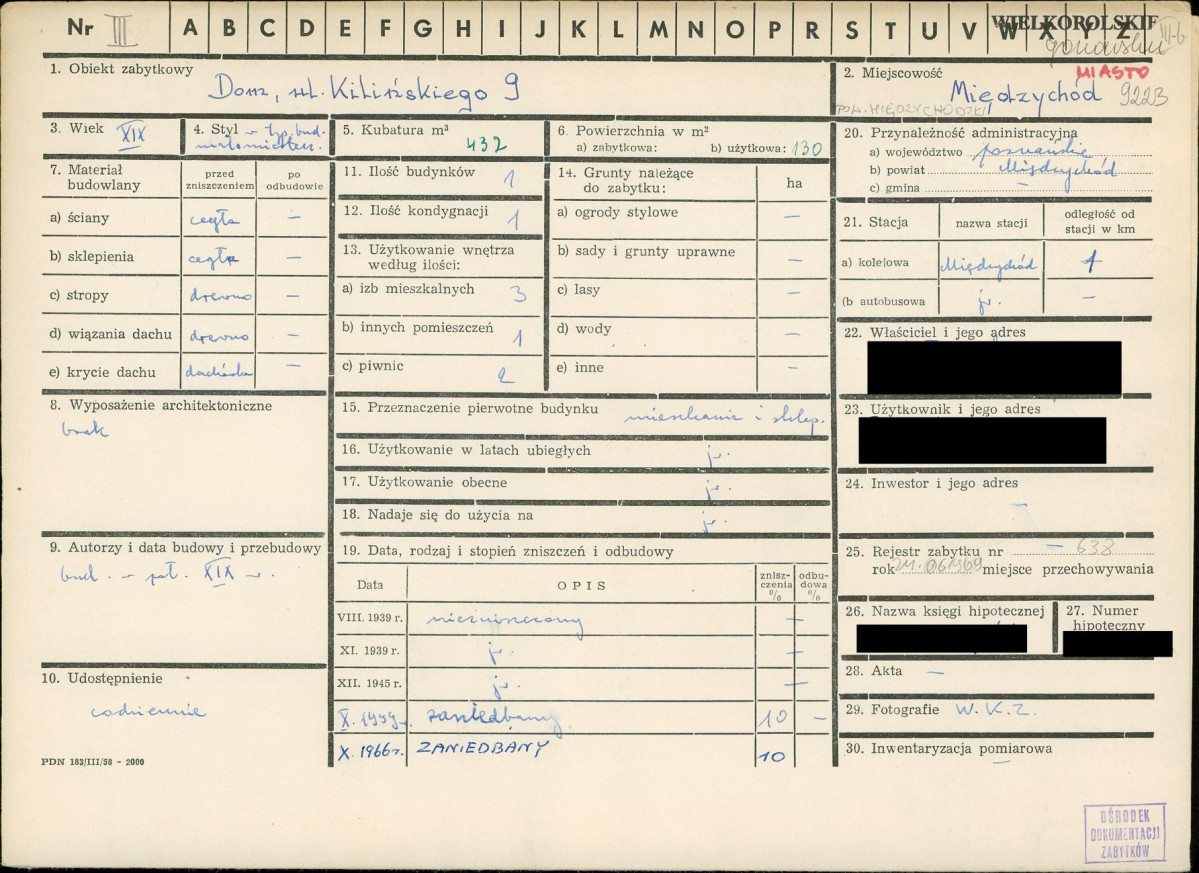 Nr III A B C D E F G H I J K L M N O P R S T U V W X Y Z
WIELKOPOLSKIE
III-b
1. Obiekt zabytkowy
Dom, ul. Kilińskiego 9
2. Miejscowość
MIASTO
Międzychód 9223
POW. MIĘDZYCHODZKI
3. Wiek XIX
4. Styl w typ. bud.
małomiastecz.
5. Kubatura m³
432
6. Powierzchnia w m²
a) zabytkowa: b) użytkowa: 130
7. Materiał budowlany
przed zniszczeniem
po odbudowie
a) ściany cegła —
b) sklepienia cegła —
c) stropy drewno —
d) wiązania dachu drewno —
e) krycie dachu dachówka —
8. Wyposażenie architektoniczne
brak
9. Autorzy i data budowy i przebudowy
bud. w poł. XIX w.
10. Udostępnienie
codziennie
PDN 183/III/58 - 2000
11. Ilość budynków 1
12. Ilość kondygnacji 1
13. Użytkowanie wnętrza
według ilości:
a) izb mieszkalnych 3
b) innych pomieszczeń 1
c) piwnic 2
14. Grunty należące
do zabytku:
ha
a) ogrody stylowe —
b) sady i grunty uprawne —
c) lasy —
d) wody —
e) inne —
15. Przeznaczenie pierwotne budynku mieszkanie i sklep.
16. Użytkowanie w latach ubiegłych jw.
17. Użytkowanie obecne jw.
18. Nadaje się do użycia na jw.
19. Data, rodzaj i stopień zniszczeń i odbudowy
Data
OPIS
znisz-
czenia
%
odbu-
dowa
%
VIII. 1939 r. niezniszczony —
XI. 1939 r. jw. —
XII. 1945 r. jw. —
X. 1959 r. zaniedbany 10 —
X. 1966 r. ZANIEDBANY 10
20. Przynależność administracyjna
a) województwo poznańskie
b) powiat Międzychód
c) gmina —
21. Stacja
nazwa stacji
odległość od
stacji w km
a) kolejowa Międzychód 1
(b autobusowa jw. —
22. Właściciel i jego adres
23. Użytkownik i jego adres
24. Inwestor i jego adres
—
25. Rejestr zabytku nr — 638
rok 24.06.1969 miejsce przechowywania
26. Nazwa księgi hipotecznej
27. Numer
hipoteczny
28. Akta —
29. Fotografie W. K. Z.
30. Inwentaryzacja pomiarowa
—
OŚRODEK
DOKUMENTACJI
ZABYTKÓW